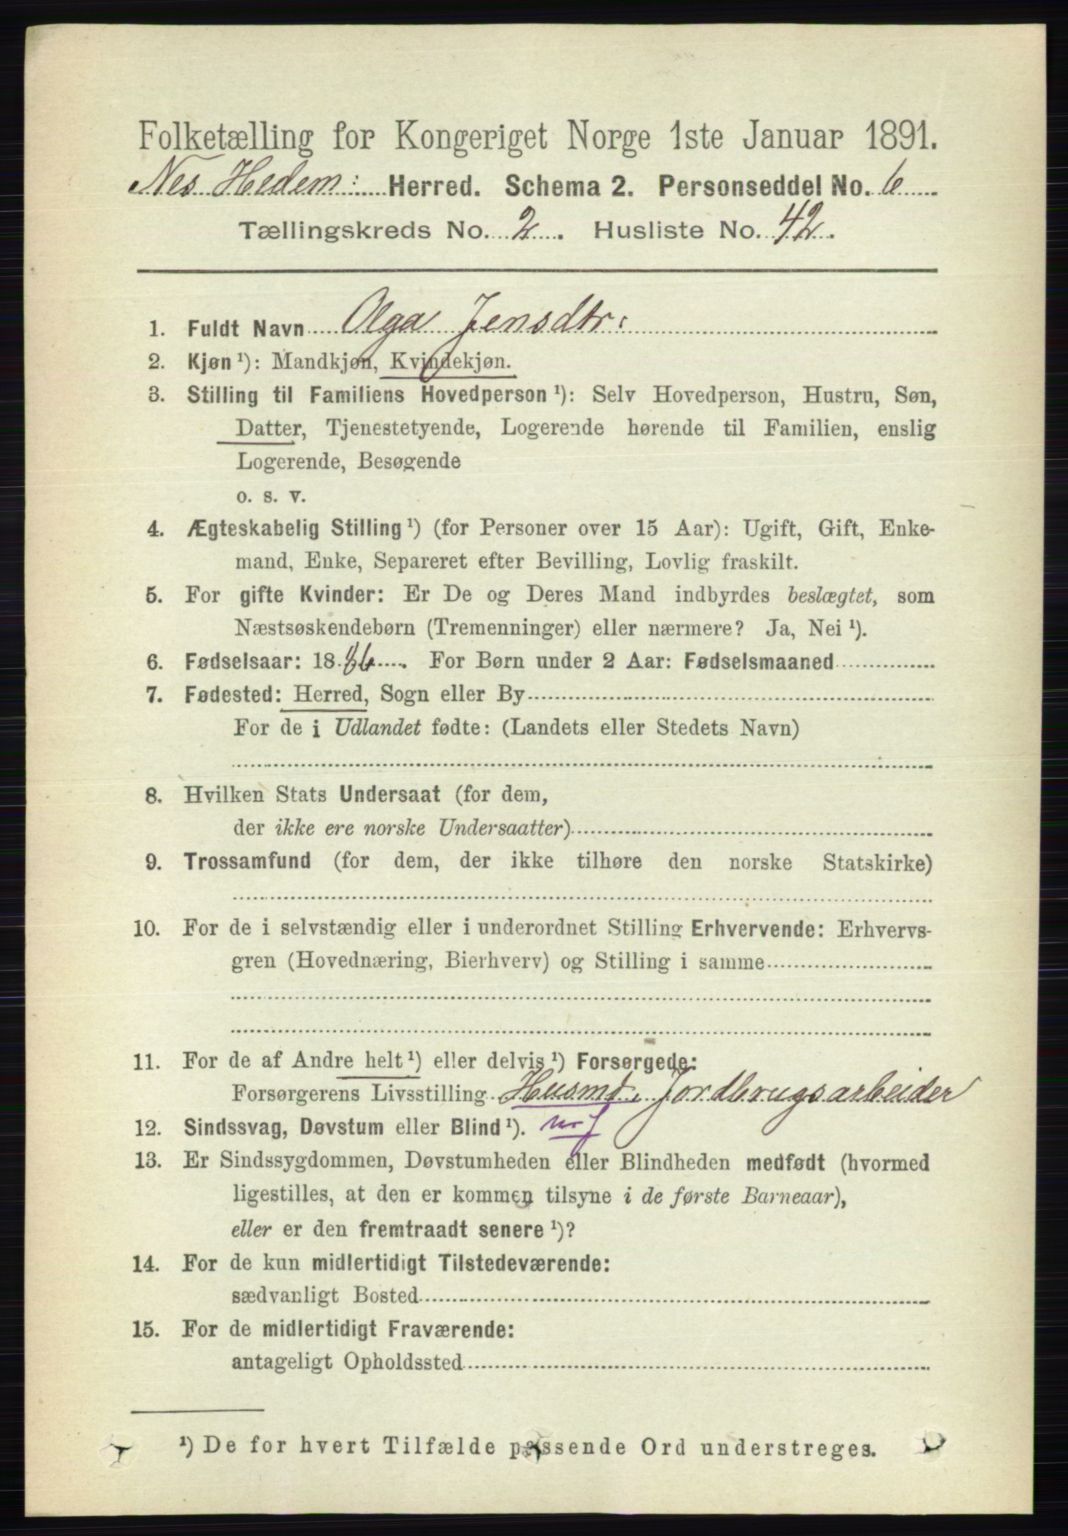 Folketælling for Kongeriget Norge 1ste Januar 1891.
Nes Hedem: Herred. Schema 2. Personseddel No. 6
Tællingskreds No. 2. Husliste No. 42.
1. Fuldt Navn Olga Jensdtr:
2. Kjøn ¹): Mandkjøn, Kvindekjøn.
3. Stilling til Familiens Hovedperson ¹): Selv Hovedperson, Hustru, Søn,
Datter, Tjenestetyende, Logerende hørende til Familien, enslig
Logerende, Besøgende
o. s. v.
4. Ægteskabelig Stilling ¹) (for Personer over 15 Aar): Ugift, Gift, Enke-
mand, Enke, Separeret efter Bevilling, Lovlig fraskilt.
5. For gifte Kvinder: Er De og Deres Mand indbyrdes beslægtet, som
Næstsøskendebørn (Tremenninger) eller nærmere? Ja, Nei ¹).
6. Fødselsaar: 1886. For Børn under 2 Aar: Fødselsmaaned
7. Fødested: Herred, Sogn eller By
For de i Udlandet fødte: (Landets eller Stedets Navn)
8. Hvilken Stats Undersaat (for dem,
der ikke ere norske Undersaatter)
9. Trossamfund (for dem, der ikke tilhøre den norske Statskirke)
10. For de i selvstændig eller i underordnet Stilling Erhvervende: Erhvervs-
gren (Hovednæring, Bierhverv) og Stilling i samme
11. For de af Andre helt ¹) eller delvis ¹) Forsørgede:
Forsørgerens Livsstilling Husmd. Jordbrugsarbeider
12. Sindssvag, Døvstum eller Blind ¹).
13. Er Sindssygdommen, Døvstumheden eller Blindheden medfødt (hvormed
ligestilles, at den er kommen tilsyne i de første Barneaar),
eller er den fremtraadt senere ¹)?
14. For de kun midlertidigt Tilstedeværende:
sædvanligt Bosted
15. For de midlertidigt Fraværende:
antageligt Opholdssted
¹) De for hvert Tilfælde passende Ord understreges.